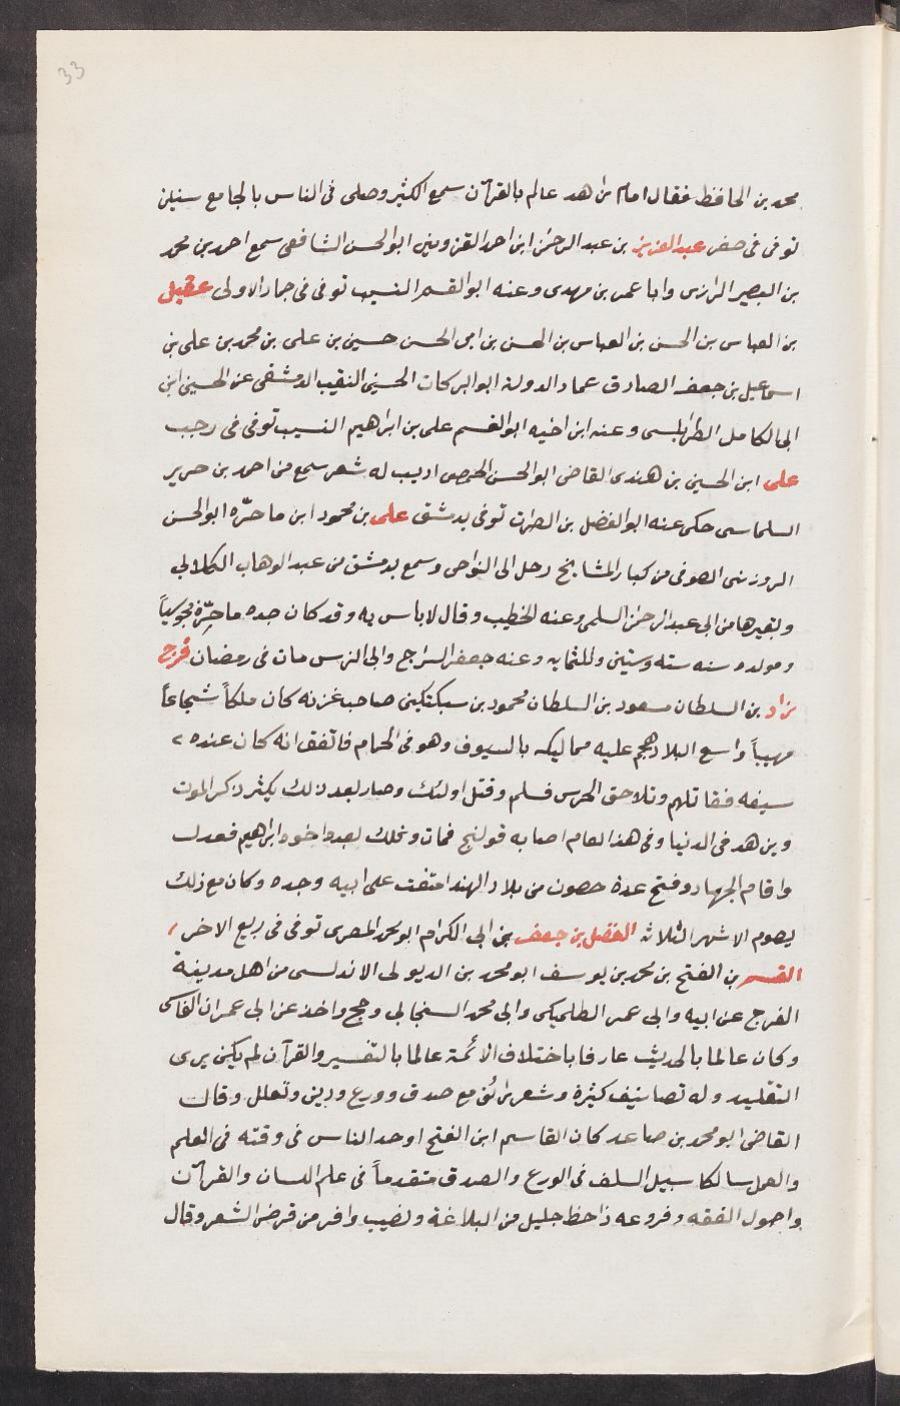 33
محمد بن الحافظ فقال امام زاهد عالم بالقرآن سمع الكثير وصلى فى الناس بالجامع سنين
توفى فى صفر عبد العزيز بن عبد الرحمن ابن احمد القزوينى ابو الحسن الشافعى سمع احمد بن محمد
بن البصير الرازى وابا عمر بن مهدى وعنه ابو القسم النسيب توفى فى جماد الاولى عقيل
بن العباس بن الحسن بن العباس بن الحسن بن ابى الحسن حسين بن على بن محمد بن على بن
اسماعيل بن جعفر الصادق عماد الدولة ابو البركات الحسينى النقيب الدمشقى عن الحسين ابن
ابى الكامل الطرابلسى وعنه ابن اخيه ابو القسم على بن ابراهيم النسيب توفى فى رجب
على ابن الحسين بن هندى القاضى ابو الحسن الحمصى اديب له شعر سمع من احمد بن حرير
السلماسى حكى عنه ابو الفضل بن الفرات توفى بدمشق على بن محمود ابن ماحرّه ابو الحسن
الزوزنى الصوفى من كبار المشايخ رحل الى النواحى وسمع بدمشق من عبد الوهاب الكلابى
وبغيرها من ابى عبد الرحمن السلمى وعنه الخطيب وقال لا باس به وقد كان جده ماحرّة مجوسياً
ومولده سنه سته وستين وثلثمايه وعنه جعفر السراج وابى النرسى مات فى رمضان فرخ
زاد بن السلطان مسعود بن السلطان محمود بن سبكتكين صاحب غزنه كان ملكاً شجاعاً
مهيباً واسع البلاد هجم عليه مماليكه بالسيوف وهو فى الحمام فاتفق انه كان عنده
سيفه فقاتلهم وتلاحق الحرس فسلم وقتل اولئك وصار بعد ذلك يكثر ذكر الموت
ويزهد فى الدنيا وفى هذا العام اصابه قولنج فمات وتملك بعده اخوه ابراهيم فعدل
واقام الجهاد وفتح عدة حصون من بلاد الهند امتنعت على ابيه وجده وكان مع ذلك
يصوم الاشهر الثلاثه الفضل بن جعفر بن ابى الكرام ابو محمد المصرى توفى فى ربيع الاخر
القسم بن الفتح بن محمد بن يوسف ابو محمد بن الديولى الاندلسى من اهل مدينة
الفرج عن ابيه وابى عمر الطلمنكى وابى محمد السنجالى وحج واخذ عن ابى عمران الفاسى
وكان عالما بالحديث عارفا باختلاف الائمة عالما بالتفسير والقرآن لم يكن يرى
التقليد وله تصانيف كثيرة وشعر رائق مع صدق وورع ودين وتعلل وقال
القاضى ابو محمد بن صاعد كان القاسم ابن الفتح اوحد الناس فى وقته فى العلم
والعمل سالكا سبيل السلف فى الورع والصدق متقدماً فى علم اللسان والقرآن
واصول الفقه وفروعه ذا حظ جليل من البلاغة ونصيب وافر من قرض الشعر وقال